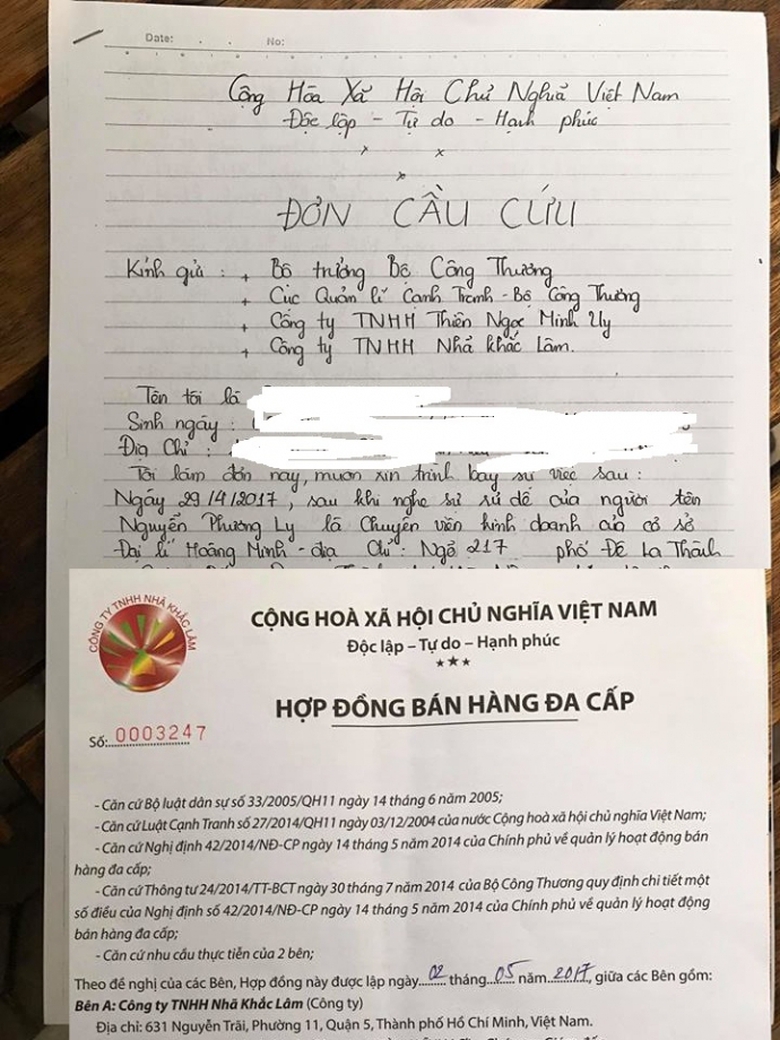 Date: . . No:
Cộng Hòa Xã Hội Chủ Nghĩa Việt Nam
Độc lập - Tự do - Hạnh phúc
ĐƠN CẦU CỨU
Kính gửi : + Bộ trưởng Bộ Công Thương
+ Cục Quản lí Cạnh Tranh - Bộ Công Thương
+ Công ty TNHH Thiên Ngọc Minh Uy
+ Công ty TNHH Nhã Khắc Lâm.
Tên tôi là
Sinh ngày :
Địa Chỉ :
Tôi làm đơn này, muốn xin trình bày sự việc sau :
Ngày 29/4/2017, sau khi nghe sự sử dể của người tên
Nguyễn Phương Ly là Chuyên viên kinh doanh của cơ sở
Đại lí Hoàng Minh - địa Chỉ : Ngõ 217 phố Đê La Thành
CÔNG TY TNHH NHÃ KHẮC LÂM
CỘNG HOÀ XÃ HỘI CHỦ NGHĨA VIỆT NAM
Độc lập – Tự do – Hạnh phúc
★★★
HỢP ĐỒNG BÁN HÀNG ĐA CẤP
Số: 0003247
- Căn cứ Bộ luật dân sự số 33/2005/QH11 ngày 14 tháng 6 năm 2005;
- Căn cứ Luật Cạnh Tranh số 27/2014/QH11 ngày 03/12/2004 của nước Cộng hoà xã hội chủ nghĩa Việt Nam;
- Căn cứ Nghị định 42/2014/NĐ-CP ngày 14 tháng 5 năm 2014 của Chính phủ về quản lý hoạt động bán
hàng đa cấp;
- Căn cứ Thông tư 24/2014/TT-BCT ngày 30 tháng 7 năm 2014 của Bộ Công Thương quy định chi tiết một
số điều của Nghị định số 42/2014/NĐ-CP ngày 14 tháng 5 năm 2014 của Chính phủ về quản lý hoạt động
bán hàng đa cấp;
- Căn cứ nhu cầu thực tiễn của 2 bên;
Theo đề nghị của các Bên, Hợp đồng này được lập ngày 02 tháng 05 năm 2017, giữa các Bên gồm:
Bên A: Công ty TNHH Nhã Khắc Lâm (Công ty)
Địa chỉ: 631 Nguyễn Trãi, Phường 11, Quận 5, Thành phố Hồ Chí Minh, Việt Nam.